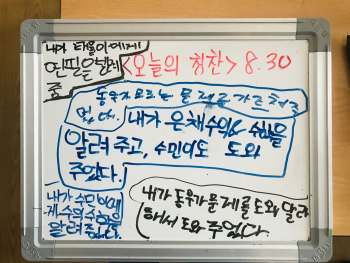 내가 태율이에게
연필을 빌려
줌
<오늘의 칭찬> 8.30
동우가 모르는 문제를 가르쳐주
었다.
내가 은채 수의 수학을
알려 주고, 수민이도 도와
주었다.
내가 수민이에
게 수의 수학을
알려 주었다.
내가 동우가 문제를 도와 달라
해서 도와 주었다.